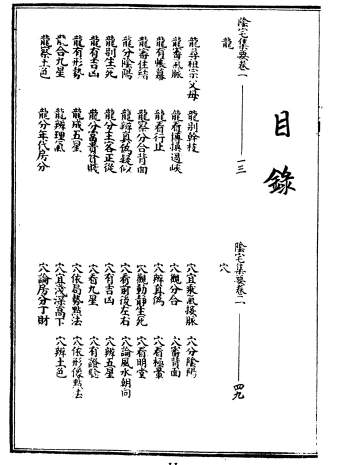 目錄
陰宅集要卷一 一三
龍
龍尋祖宗父母 龍別幹枝
龍審氣脈 龍看傳換過峽
龍有帳幕 龍看行止
龍審住結 龍察分合背面
龍分陰陽 龍辨真偽疑似
龍別生死 龍分主客正從
龍有吉凶 龍分富貴貧賤
龍有形勢 龍成五星
龍合九星 龍辨理氣
龍察土色 龍分年代房分
陰宅集要卷二 四九
穴
穴宜乘氣接脈 穴分陰陽
穴觀分合 穴審背面
穴辨真偽 穴看極暈
穴觀動靜生死 穴看明堂
穴看前後左右 穴論風水朝向
穴有吉凶 穴辨五星
穴看九星 穴有證驗
穴依局勢點法 穴依形像點法
穴宜淺深高下 穴辨土色
穴論房分丁財